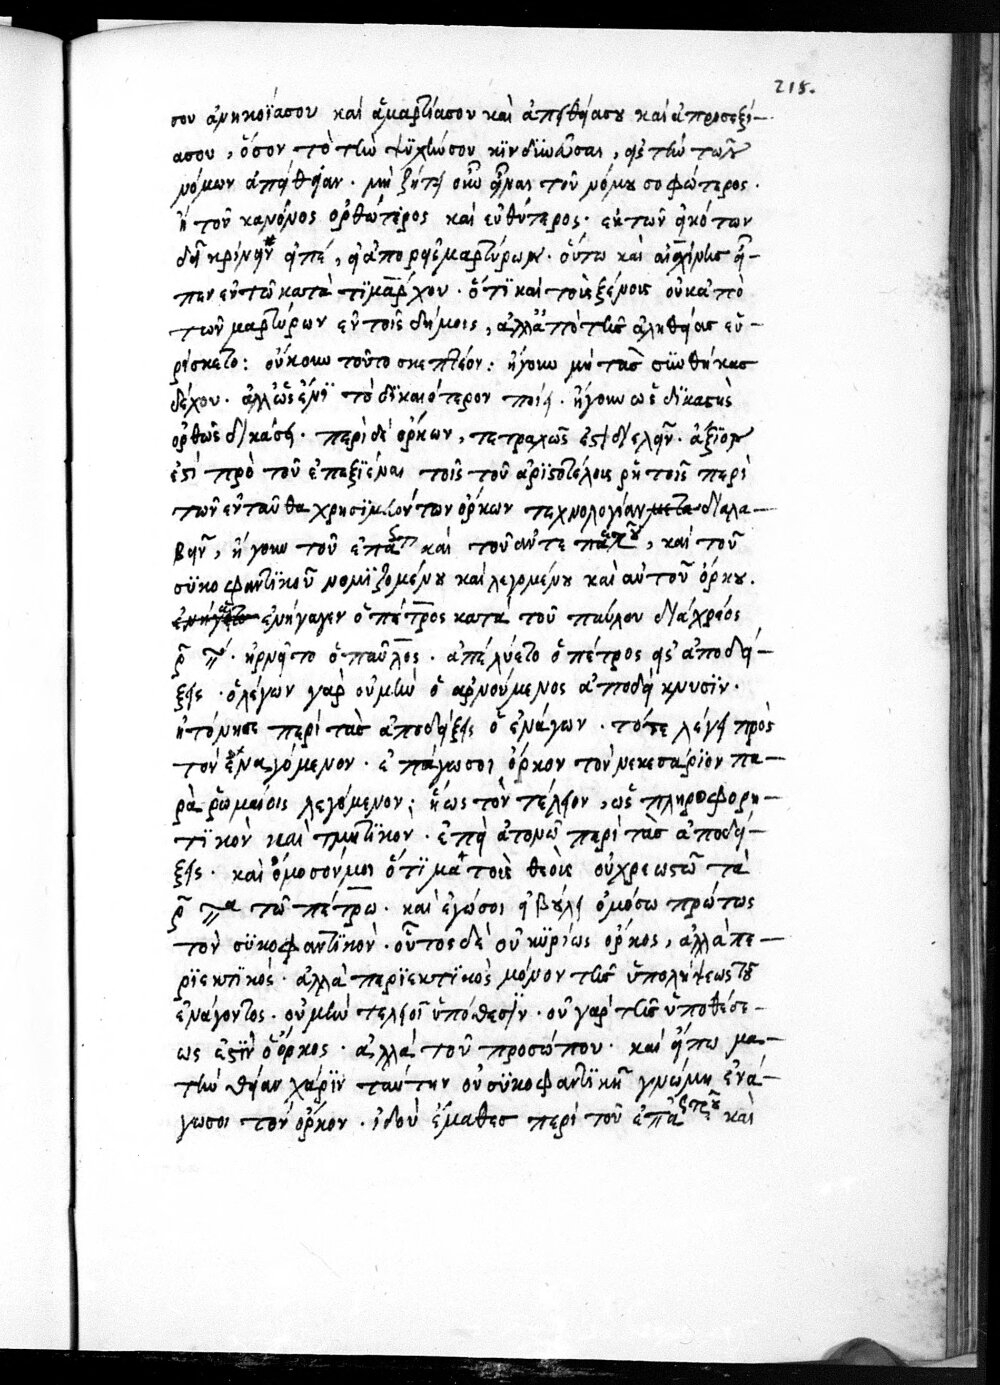 215.
σου ἀνηκοΐασου καὶ ἁμαρτίασου καὶ ἀπειθείασου καὶ ἀπροσεξί-
ασου, ὅσον τὸ τὴν ψυχήν σου κϊνδϋνεῦσαι, εἰς τὴν τῶν
νόμων ἀπείθειαν. μὴ ζήτει οὖν εἶναι τοῦ νόμου σοφώτερος.
ἢ τοῦ κανόνος ὀρθώτερος καὶ εὐθύτερος. ἐκ τῶν εἰκότων
δεῖ κρίνειν εἰπέ, εἰ ἀπορεῖ μαρτύρων. οὕτω καὶ αἰσχίνης εἶ-
πεν ἐν τῶ κατὰ τϊμάρχου. ὅτι καὶ τοῖς ξένοις οὐκ ἀπὸ
τῶν μαρτύρων ἐν τοῖς δήμοις, ἀλλ' ἀπὸ τῆς ἀληθείας εὑ-
ρίσκετο: οὔκουν τοῦτο σκεπτέον: ἤγουν μὴ τὰς σϋνθήκας
δέχου. ἀλλ' ὡς ἔνϊ τὸ δϊκαιότερον ποίει. ἤγουν ὡς δϊκαστὴς
ὀρθῶς δίκασει. περὶ δὲ ὅρκων, τετραχῶς ἔστι διελεῖν. ἄξϊον
ἐστὶ πρὸ τοῦ ἐπεξϊέναι τοῖς τοῦ ἀρϊστοτέλους ῥητοῖς περὶ
τῶν ἐνταῦθα χρησϊμευόντων ὅρκων τεχνολογίαν μετα διαλα-
βεῖν, ἤγουν τοῦ ἐπα καὶ τοῦ ἀντεπα, καὶ τοῦ
σϋκοφαντϊκοῦ νομϊζομένου καὶ λεγομένου καὶ αὐτοῦ ὅρκου.
ἐνήγαγεν ὁ πέτρος κατὰ τοῦ παύλου διὰ χρέος
ἠρνεῖτο ὁ παῦλος. ἀπελύετο ὁ πέτρος εἰς ἀποδεί-
ξεις. ὁ λέγων γὰρ οὐ μὴν ὁ ἀρνούμενος ἀποδείκνυσϊν.
ἠτόνησε περὶ τὰς ἀποδείξεις ὁ ἐνάγων. τότε λέγει πρὸς
τὸν ἐναγόμενον. ἐπάγωσοι ὅρκον τὸν νεκεσάρϊον πα-
ρὰ ῥωμαίοις λεγόμενον: ἤως τὸν τέλειον, ὡς πληροφορη-
τϊκὸν καὶ τμητϊκον. ἐπεὶ ἀτονῶ περὶ τὰς ἀποδεί-
ξεις. καὶ ὄμοσόν μοι ὅτϊ μὰ τοὺς θεοὺς οὐ χρεωστῶ τὰ
τῶ πέτρω. καὶ ἐγώσοι εἰ βούλει ὀμόσω πρώτως
τὸν σϋκοφαντϊκὸν. οὗτος δὲ οὐ κϋρίως ὅρκος, ἀλλὰ πε-
ρϊεκτϊκὸς. ἀλλὰ περϊεκτϊκὸς μόνον τῆς ὑπολήψεως τοῦ
ἐνάγοντος. οὐ μὴν τελειοῖ ὑπόθεσϊν. οὐ γὰρ τῆς ὑποθέσε-
ως ἐστὶν ὁ ὅρκος. ἀλλὰ τοῦ προσώπου. καὶ εἴπω μα-
τὴν θείαν χάρϊν ταύτην οὐ σϋκοφαντϊκῆ γνώμη ἐνά-
γωσοι τὸν ὅρκον. ἰδοὺ ἔμαθες περὶ τοῦ ἐπα καὶ